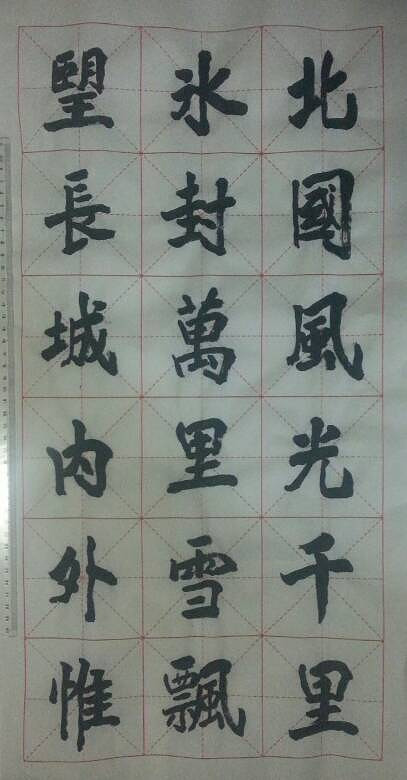 北國風光千里
氷封萬里雪飄
朢長城内外惟